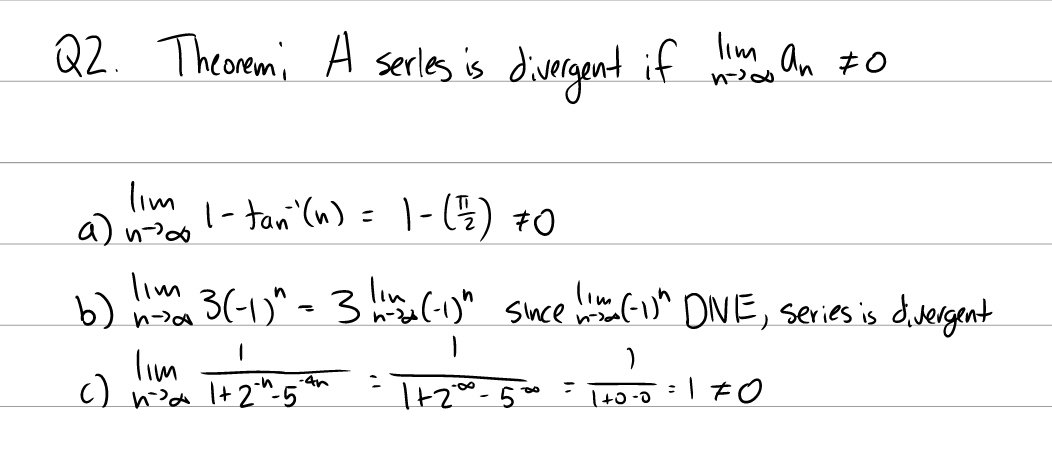 Q2. Theorem: A series is divergent if lim n→∞ an ≠ 0
a) lim n→∞ 1 - tan⁻¹(n) = 1 - (π/2) ≠ 0
b) lim n→∞ 3(-1)ⁿ = 3 lim n→∞ (-1)ⁿ since lim n→∞ (-1)ⁿ DNE, series is divergent
c) lim n→∞ 1/(1+2⁻ⁿ-5⁻⁴ⁿ) = 1/(1+2^-∞ - 5^-∞) = 1/(1+0-0) = 1 ≠ 0